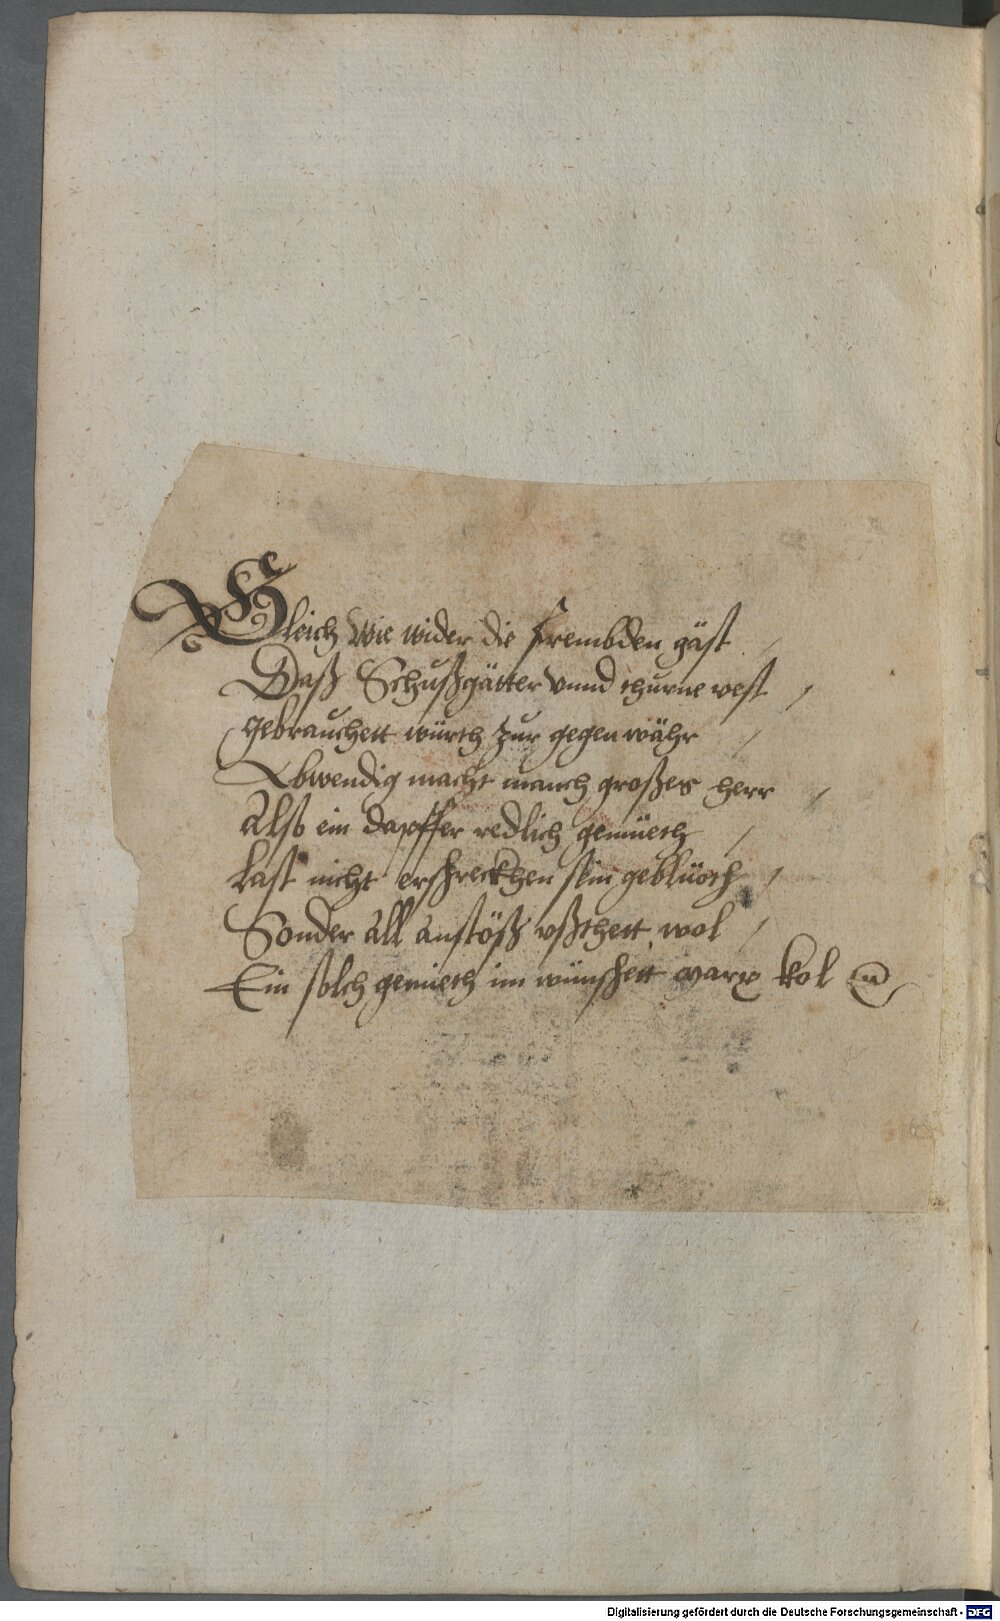 Gleich wie wider die frembden gäst /
Daß Schußgätter vnnd thurne vest /
gebrauchett würth zur gegenwähr /
Abwendig macht manch großes herr /
Also ein dapffer redlich gemüeth /
Last nicht erschreckhen sein geblüoth /
Sonder all anstöß vßthett wol /
Ein solch gemieth im wünschett marx kol
Digitalisierung gefördert durch die Deutsche Forschungsgemeinschaft - DFG